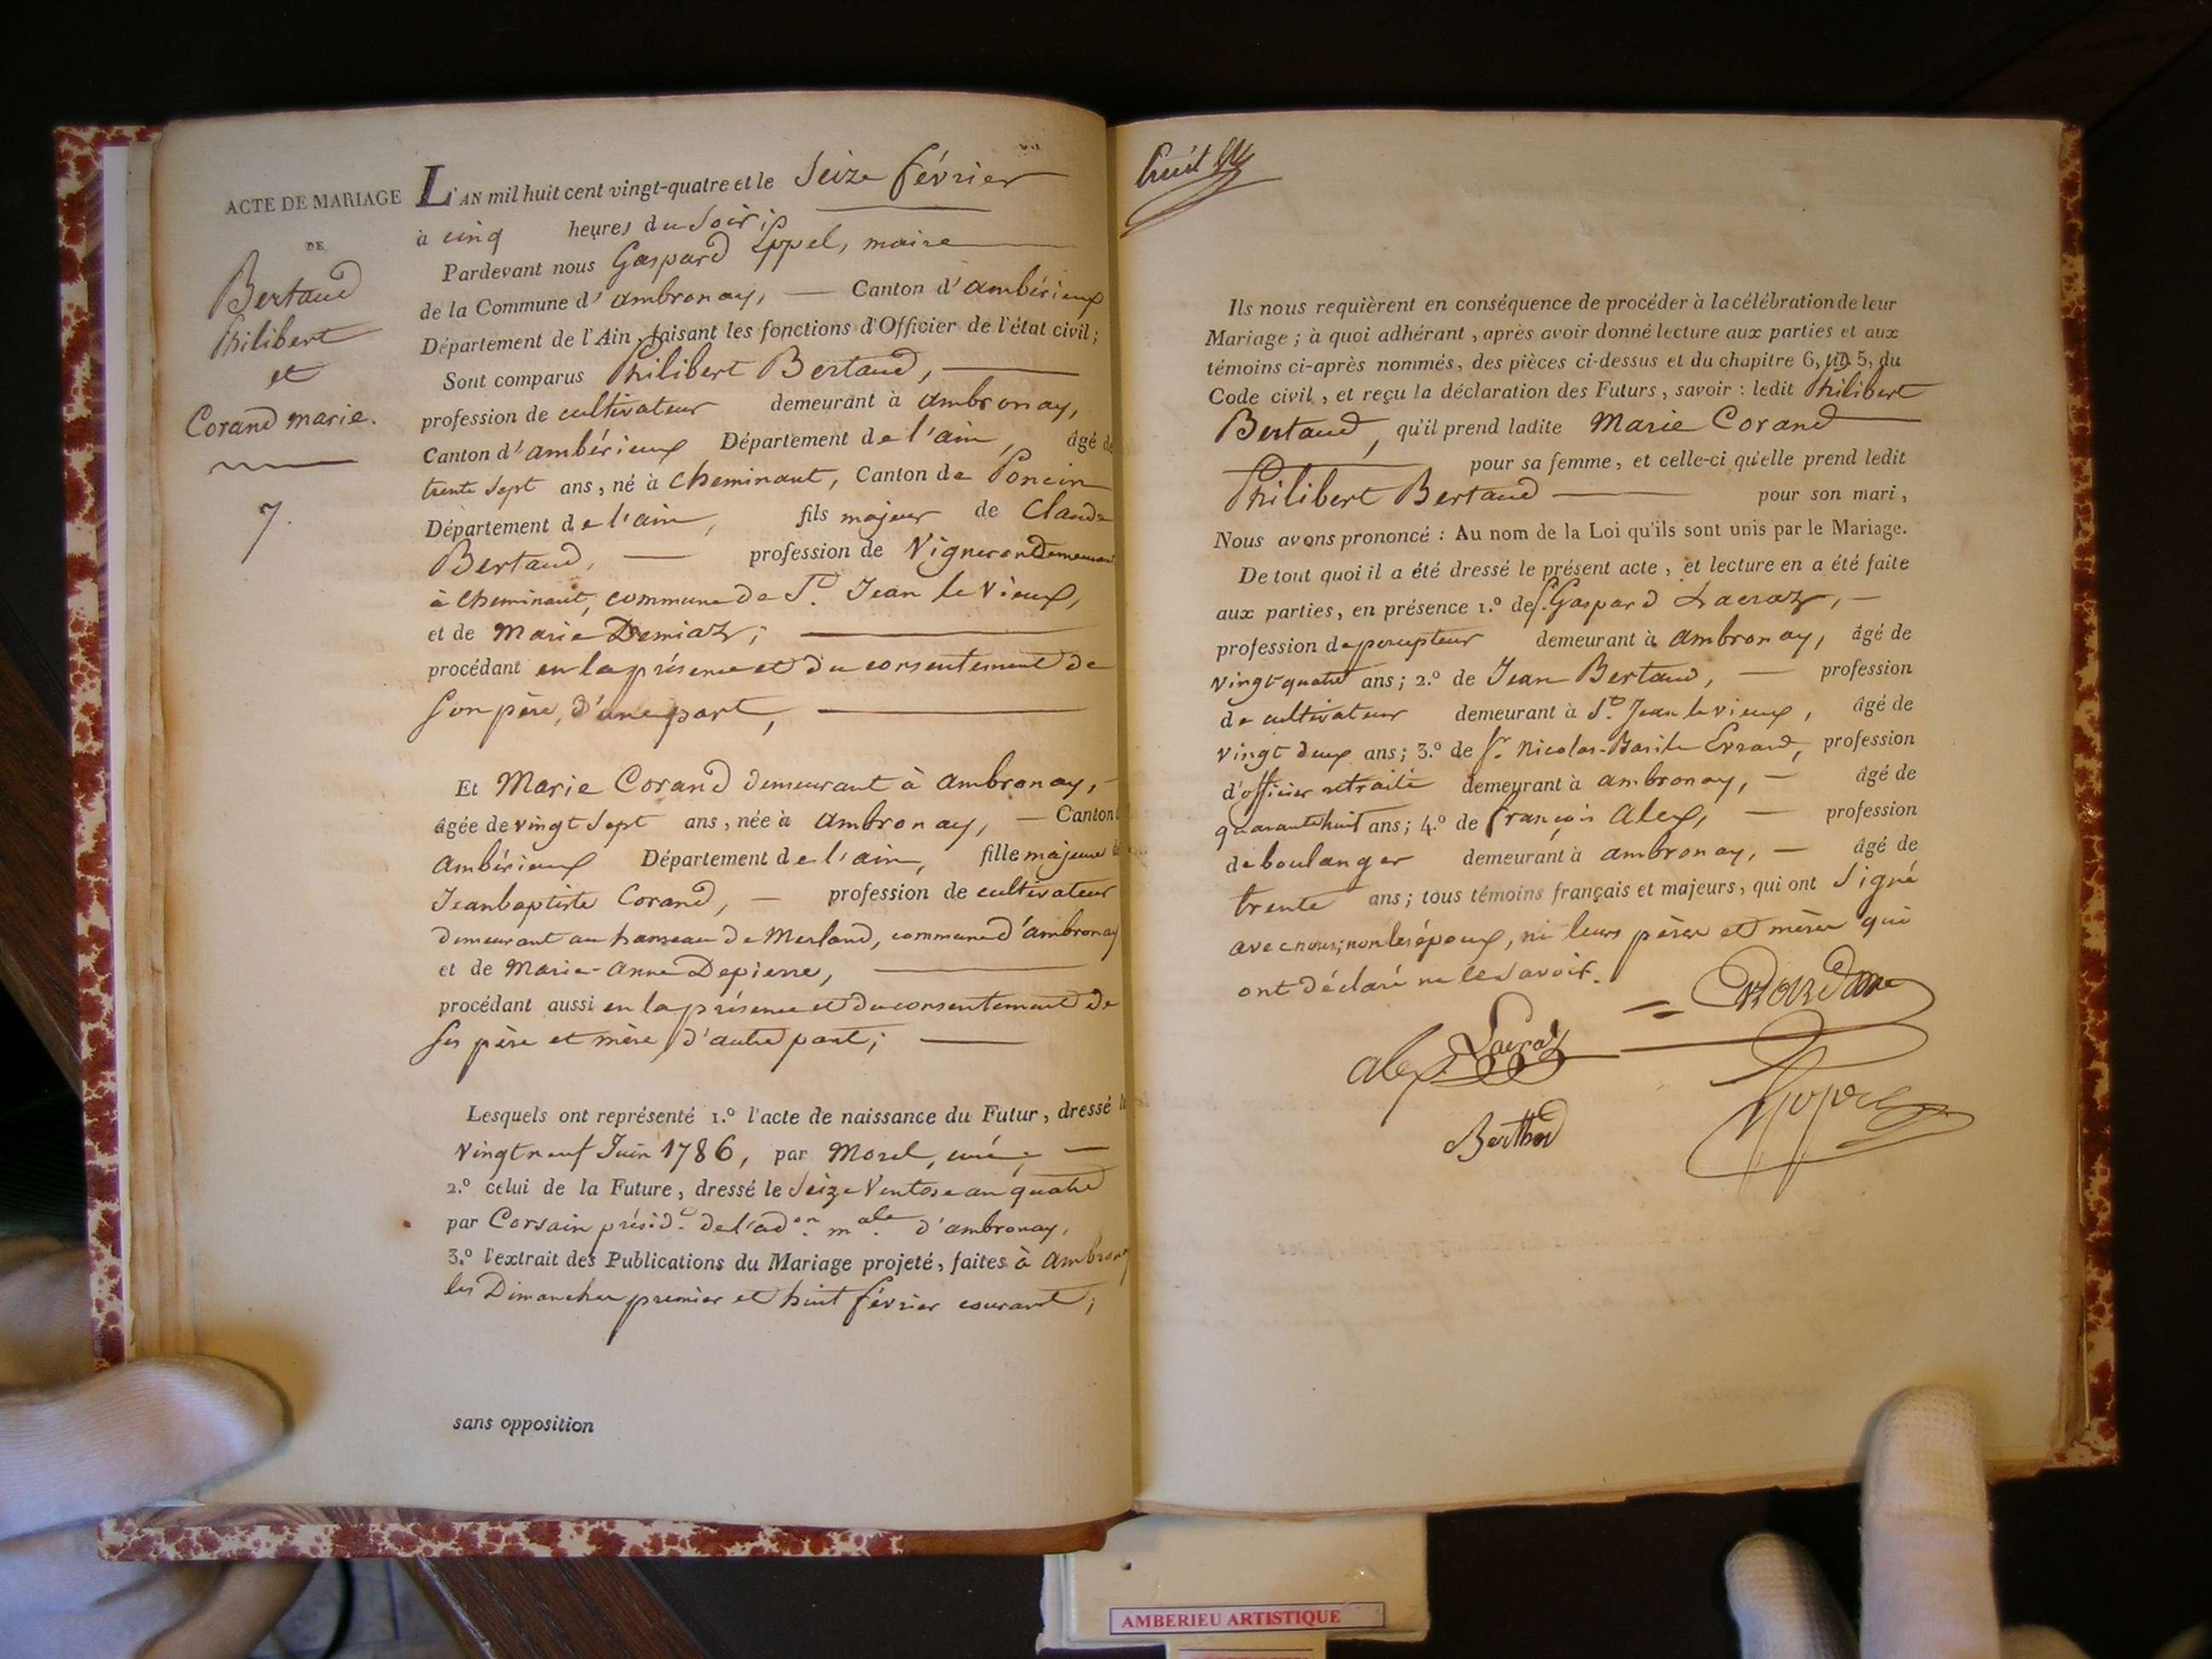 ACTE DE MARIAGE
DE
Bertaud
Philibert
et
Corand marie.
7.
L'AN mil huit cent vingt-quatre et le Seize février
à cinq heures du Soir;
Pardevant nous Gaspard Eppel, maire
de la Commune d'ambronay, — Canton d'ambérieux
Département de l'Ain, faisant les fonctions d'Officier de l'état civil;
Sont comparus Philibert Bertaud, —
profession de cultivateur demeurant à ambronay,
Canton d'ambérieux Département de l'ain, âgé de
trente Sept ans, né à Cheminant, Canton de Poncin
Département de l'ain, fils majeur de Claude
Bertaud, — profession de Vigneron Demeurant
à Cheminant, commune de St. Jean le Vieux,
et de Marie Demiaz; —
procédant en la présence et du consentement de
Son père, d'une part, —
Et Marie Corand demeurant à ambronay, -
âgée de vingt Sept ans, née à ambronay, — Canton
ambérieux Département de l'ain, fille majeure
Jeanbaptiste Corand, — profession de cultivateur
demeurant au hameau de Merland, commune d'ambronay
et de Marie-anne Depierre, —
procédant aussi en la présence et du consentement de
Ses père et mère, d'autre part; —
Lesquels ont représenté 1.º l'acte de naissance du Futur, dressé le
Vingt neuf Juin 1786, par Morel, curé; —
2.º celui de la Future, dressé le Seize Ventose an quatre
par Corsain présid.t de l'ad.on m.ale d'ambronay.
3.º l'extrait des Publications du Mariage projeté, faites à ambronay
les Dimanches premier et huit février courant;
sans opposition
huit
Ils nous requièrent en conséquence de procéder à la célébration de leur
Mariage; à quoi adhérant, après avoir donné lecture aux parties et aux
témoins ci-après nommés, des pièces ci-dessus et du chapitre 6, tit. 5, du
Code civil, et reçu la déclaration des Futurs, savoir: ledit Philibert
Bertaud, qu'il prend ladite Marie Corand
pour sa femme, et celle-ci qu'elle prend ledit
Philibert Bertaud — pour son mari,
Nous avons prononcé: Au nom de la Loi qu'ils sont unis par le Mariage.
De tout quoi il a été dressé le présent acte, et lecture en a été faite
aux parties, en présence 1.º de S. Gaspard Lacraz, —
profession de percepteur demeurant à ambronay, âgé de
vingt-quatre ans; 2.º de Jean Bertaud, — profession
de cultivateur demeurant à St. Jean le vieux, âgé de
vingt deux ans; 3.º de Sr. Nicolas-Basile Evrard, profession
d'officier retraité demeurant à ambronay, — âgé de
quarante huit ans; 4.º de françois Alex, — profession
de boulanger demeurant à ambronay, — âgé de
trente ans; tous témoins français et majeurs, qui ont Signé
avec nous; non les époux, ni leurs pères et mères qui
ont déclaré ne le Savoir.
alex Lacraz
AMBERIEU ARTISTIQUE